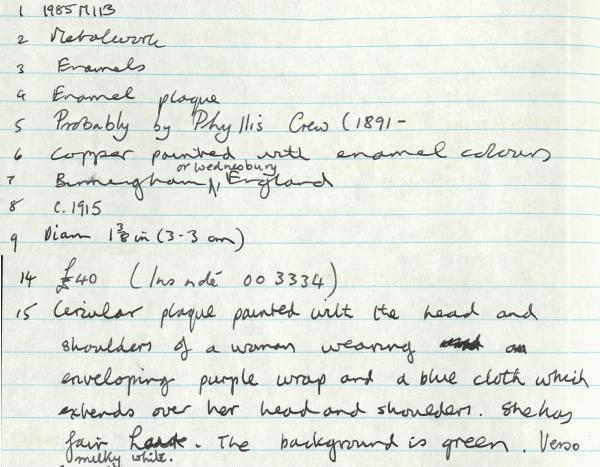 1 1985M113
2 Metalwork
3 Enamels
4 Enamel plaque
5 Probably by Phyllis Crew (1891-
6 Copper painted with enamel colours
or Wednesbury
7 Birmingham, England
8 c. 1915
9 Diam 1 3/8 in (3-3 cm)
14 £40 (Ins ndé 00 3334)
15 Circular plaque painted with the head and
shoulders of a woman wearing an
enveloping purple wrap and a blue cloth which
extends over her head and shoulders. She has
fair . The background is green. Verso
milky white.